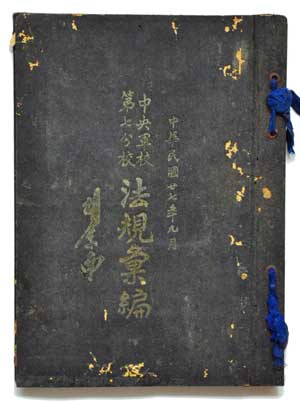 中華民國廿七年九月
中央軍校
第七分校
法規彙編
胡宗南